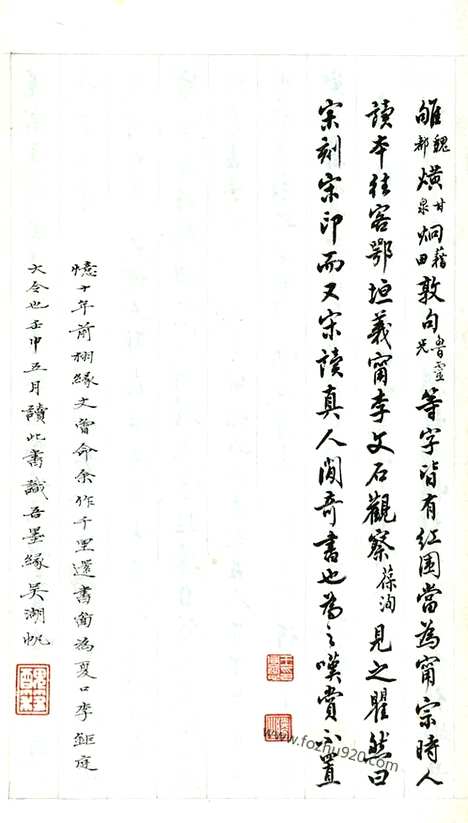 雎魏都熿甘泉炯藉田敦句魯靈光等字皆有紅圍當為甯宗時人
讀本往客鄂垣義甯李文石觀察葆洵見之瞿然曰
宋刻宋印而又宋讀真人閒奇書也為之嘆賞不置
憶十年前栩緣丈曾命余作千里還書圖為夏口李鉅庭
大令也壬申五月讀此書識吾墨緣吳湖帆
www.fozhu920.com